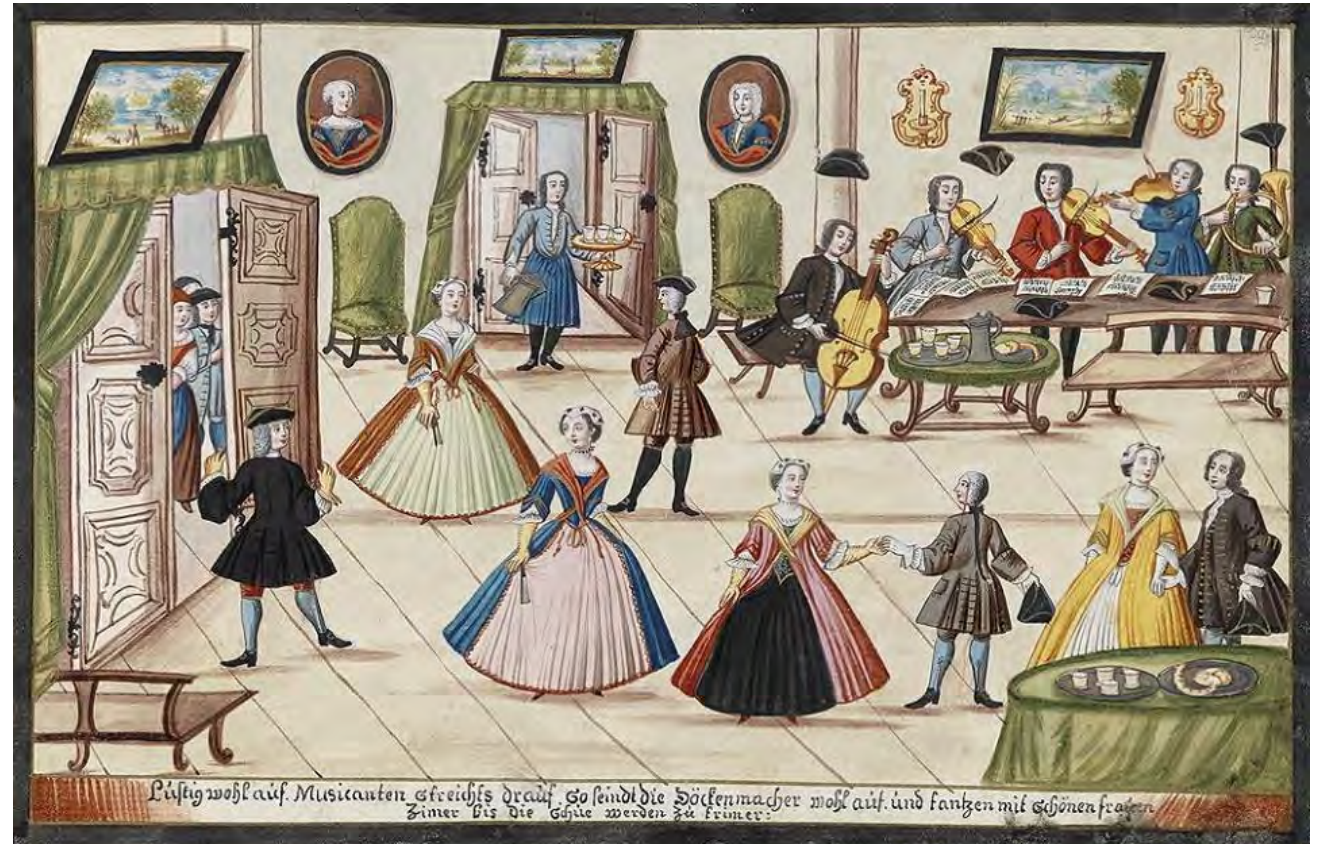 Lustig wohl auf. Musicanten streichts drauf. So seindt die Döckenmacher wohl auf. und tantzen mit Schönen frauen
Zimer bis die Schue werden zu trimer: